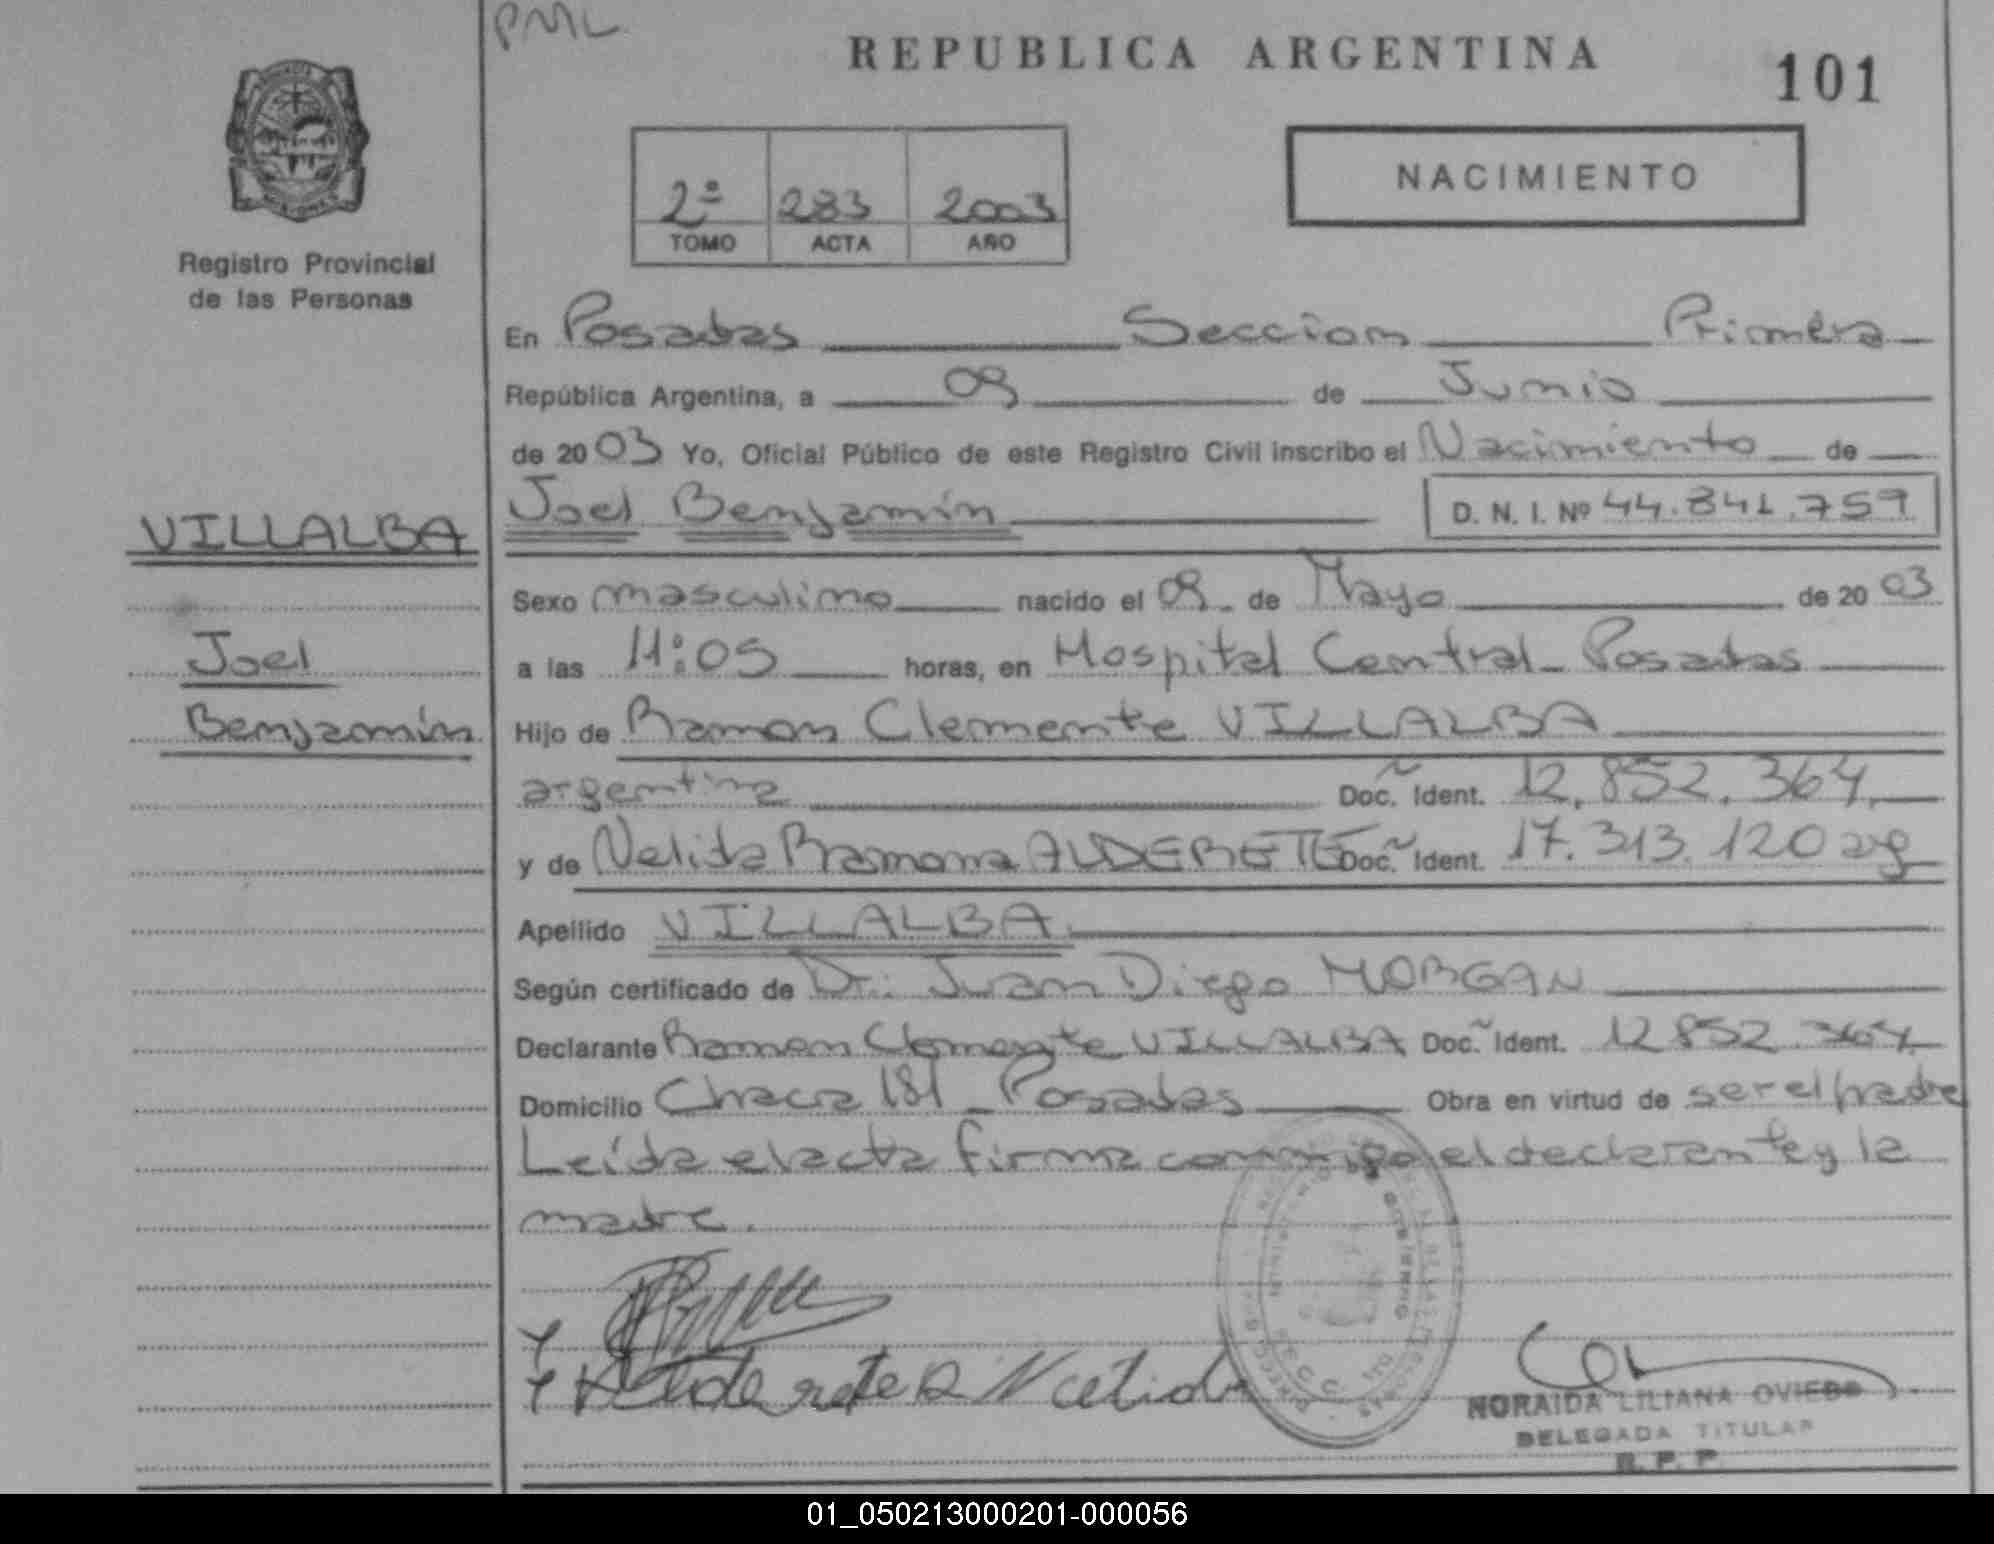 PML
REPUBLICA ARGENTINA
101
NACIMIENTO
2º 283 2003
TOMO ACTA AÑO
Registro Provincial
de las Personas
En Posadas Seccion Primera
República Argentina, a 09 de Junio
de 2003 Yo, Oficial Público de este Registro Civil inscribo el Nacimiento de
VILLALBA
Joel Benjamín D. N. I. Nº 44.841.759
Sexo masculino nacido el 09 de Mayo de 2003
Joel
a las 11:05 horas, en Hospital Central Posadas
Benjamín
Hijo de Ramon Clemente VILLALBA
argentina Doc. Ident. 12.852.364
y de Nelida Ramona ALDERETE Doc. Ident. 17.313.120 arg
Apellido VILLALBA
Según certificado de Dr. Juan Diego MORGAN
Declarante Ramon Clemente VILLALBA Doc. Ident. 12852.364
Domicilio Chacra 181 Posadas Obra en virtud de ser el padre
Leída el acta firma conmigo el declarante y la
madre.
Alderete R Nelida
NORAIDA LILIANA OVIEDO
DELEGADA TITULAR
R. P. P
01_050213000201-000056